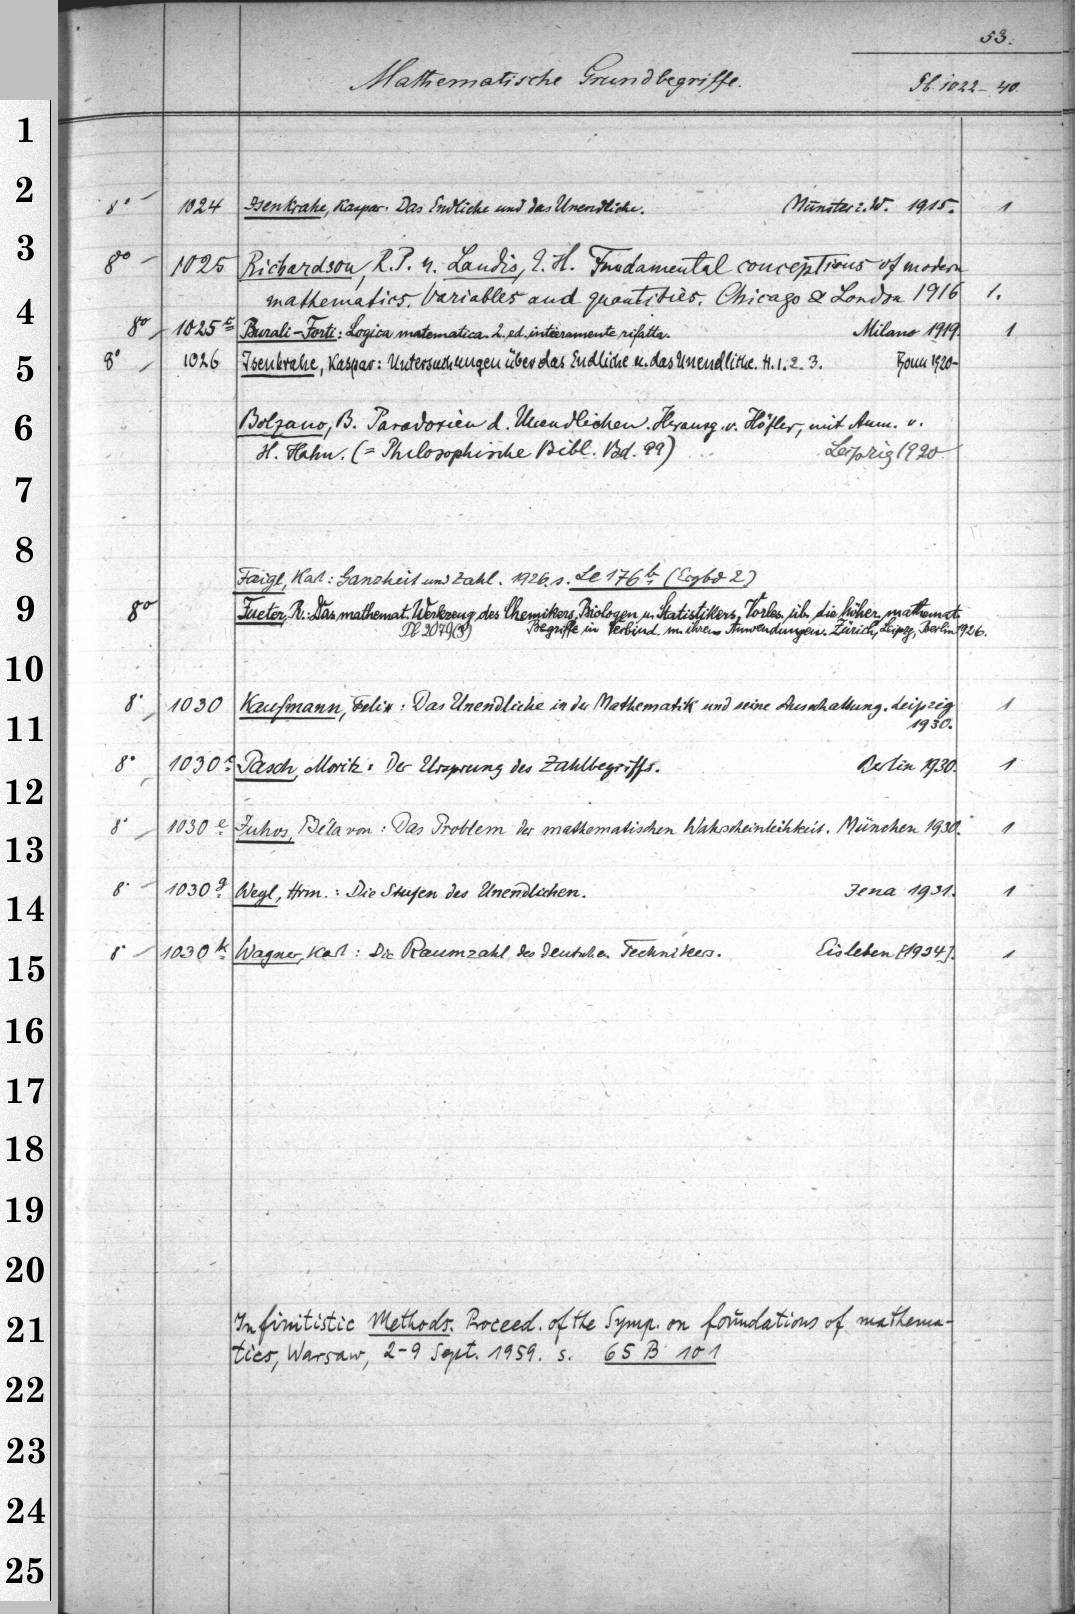 53.
Mathematische Grundbegriffe. Pb. 1022-40.
1
2
8° 1024 Isenkrahe, Kaspar. Das Endliche und das Unendliche. Münster i. W. 1915. 1
3
8° 1025 Richardson, R. P. u. Landis, E. H. Fundamental conceptions of modern
mathematics. Variables and quantities. Chicago & London 1916 1.
4
8° 1025 c Burali-Forti: Logica matematica. 2. ed. interamente rifatta. Milano 1919. 1
5
8° 1026 Isenkrahe, Kaspar: Untersuchungen über das Endliche u. das Unendliche. H. 1. 2. 3. Bonn 1920-
6
Bolzano, B. Paradoxien d. Unendlichen. Herausg. v. Höfler, mit Anm. v.
H. Hahn. (= Philosophische Bibl. Bd. 99) Leipzig 1920
7
8
Faigl, Karl: Ganzheit und Zahl. 1926. s. Le 176 b. (Ergbd 2)
9
8° Fueter, R.: Das mathemat. Werkzeug des Chemikers, Biologen u. Statistikers, Vorles. üb. die höher. mathemat.
Pl 2079(3) Begriffe in Verbind. m. ihren Anwendungen. Zürich, Leipz, Berlin 1926.
10
8° 1030 Kaufmann, Felix: Das Unendliche in der Mathematik und seine Ausschaltung. Leipzig 1
1930.
11
8° 1030 c Pasch, Moritz: Der Ursprung des Zahlbegriffs. Berlin 1930. 1
12
8° 1030 e Juhos, Béla von: Das Problem der mathematischen Wahrscheinlichkeit. München 1930. 1
13
8° 1030 g Weyl, Hrm.: Die Stufen des Unendlichen. Jena 1931. 1
14
8° 1030 k Wagner, Karl: Die Raumzahl des deutschen Technikers. Eisleben [1934]. 1
15
16
17
18
19
20
21
Infinitistic Methods. Proceed. of the Symp. on foundations of mathema-
tics, Warsaw, 2-9 Sept. 1959. s. 65 B 101
22
23
24
25